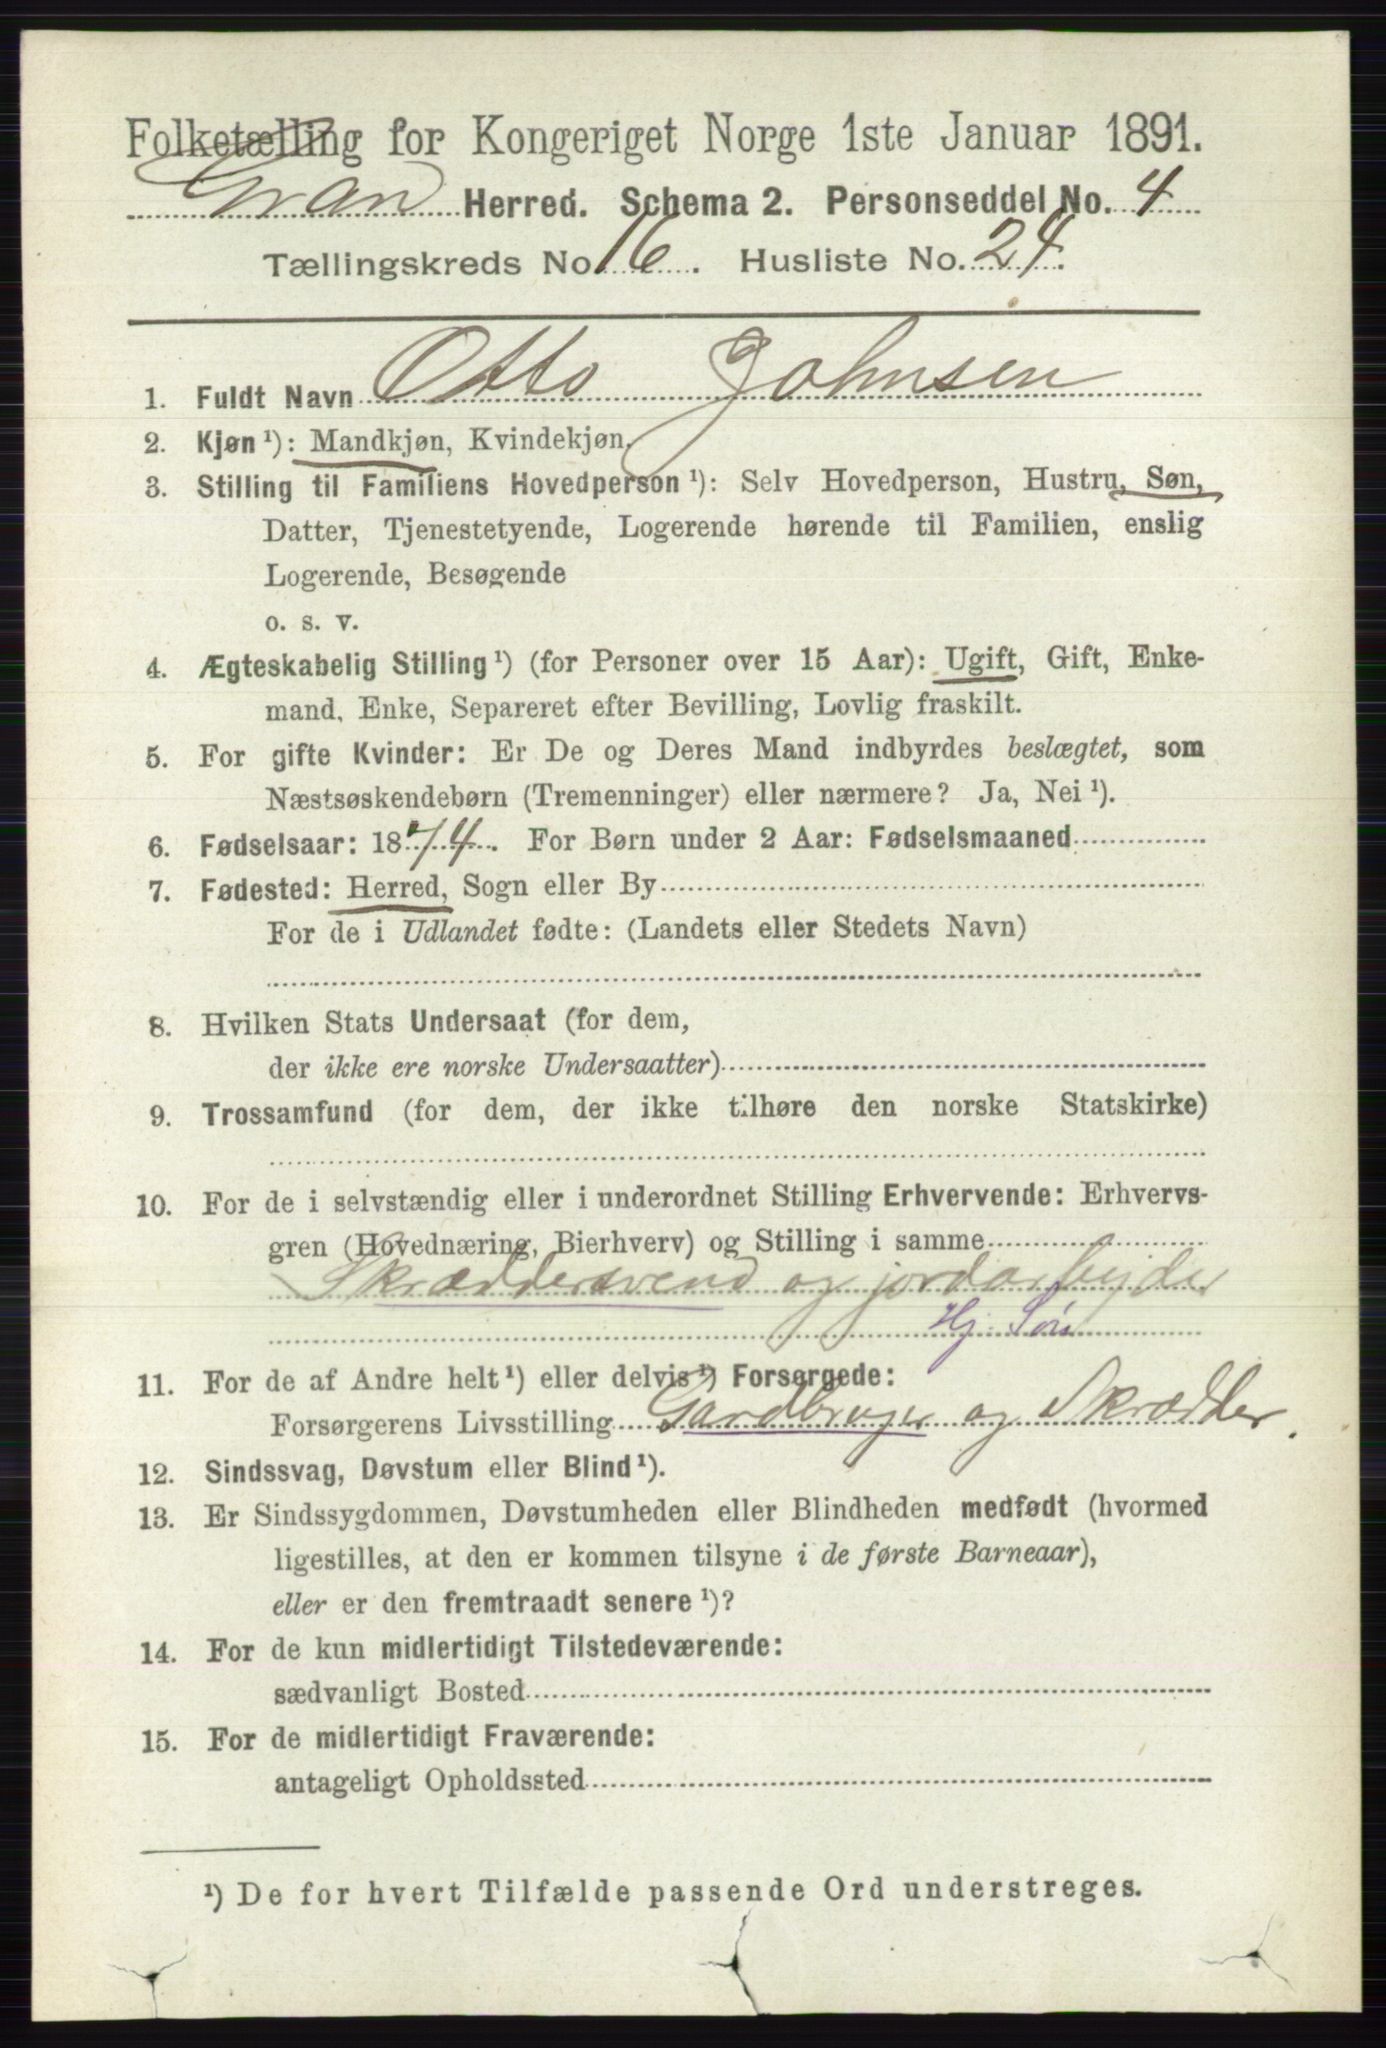 Folketælling for Kongeriget Norge 1ste Januar 1891.
Gran Herred. Schema 2. Personseddel No. 4
Tællingskreds No. 16. Husliste No. 24.
1. Fuldt Navn Otto Johnsen
2. Kjøn ¹): Mandkjøn, Kvindekjøn.
3. Stilling til Familiens Hovedperson ¹): Selv Hovedperson, Hustru, Søn,
Datter, Tjenestetyende, Logerende hørende til Familien, enslig
Logerende, Besøgende
o. s. v.
4. Ægteskabelig Stilling ¹) (for Personer over 15 Aar): Ugift, Gift, Enke-
mand, Enke, Separeret efter Bevilling, Lovlig fraskilt.
5. For gifte Kvinder: Er De og Deres Mand indbyrdes beslægtet, som
Næstsøskendebørn (Tremenninger) eller nærmere? Ja, Nei ¹).
6. Fødselsaar: 1874. For Børn under 2 Aar: Fødselsmaaned
7. Fødested: Herred, Sogn eller By
For de i Udlandet fødte: (Landets eller Stedets Navn)
8. Hvilken Stats Undersaat (for dem,
der ikke ere norske Undersaatter)
9. Trossamfund (for dem, der ikke tilhøre den norske Statskirke)
10. For de i selvstændig eller i underordnet Stilling Erhvervende: Erhvervs-
gren (Hovednæring, Bierhverv) og Stilling i samme
Skræddersvend og jordarbejder
Hj. Søn
11. For de af Andre helt ¹) eller delvis ¹) Forsørgede:
Forsørgerens Livsstilling Gardbruger og Skrædder.
12. Sindssvag, Døvstum eller Blind ¹).
13. Er Sindssygdommen, Døvstumheden eller Blindheden medfødt (hvormed
ligestilles, at den er kommen tilsyne i de første Barneaar),
eller er den fremtraadt senere ¹)?
14. For de kun midlertidigt Tilstedeværende:
sædvanligt Bosted
15. For de midlertidigt Fraværende:
antageligt Opholdssted
¹) De for hvert Tilfælde passende Ord understreges.